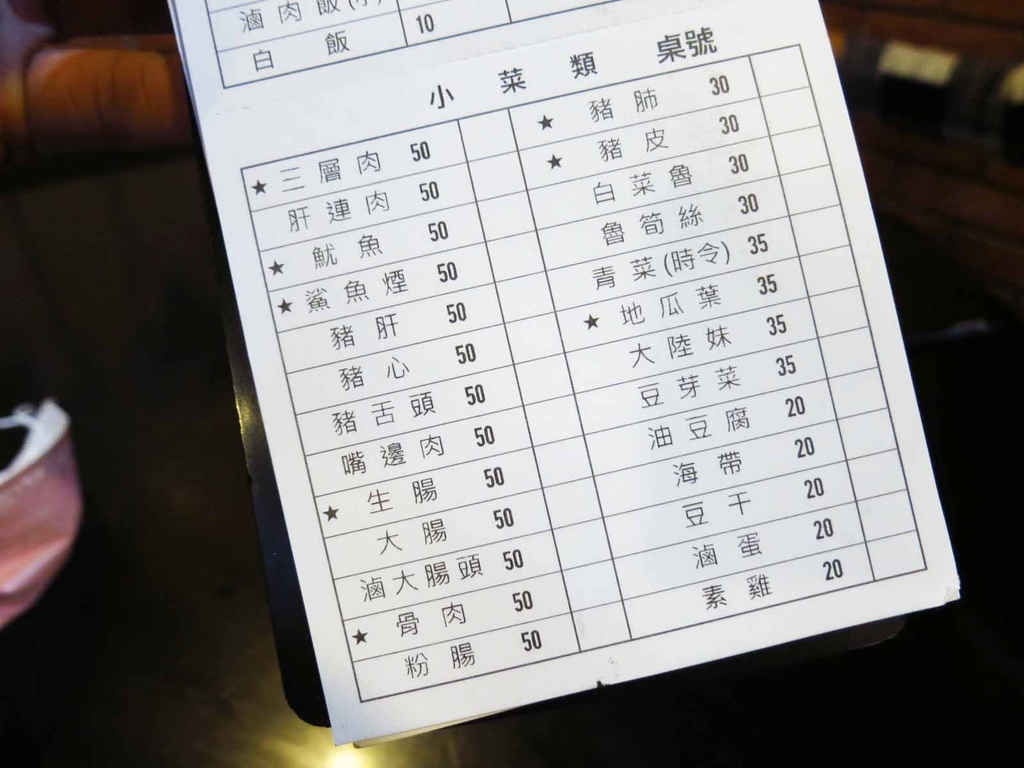 滷肉飯(小)
白飯 10
小菜類 桌號
★三層肉 50
肝連肉 50
★魷魚 50
★鯊魚煙 50
豬肝 50
豬心 50
豬舌頭 50
嘴邊肉 50
★生腸 50
大腸 50
滷大腸頭 50
★骨肉 50
粉腸 50
★豬肺 30
★豬皮 30
白菜魯 30
魯筍絲 30
青菜(時令) 35
★地瓜葉 35
大陸妹 35
豆芽菜 35
油豆腐 20
海帶 20
豆干 20
滷蛋 20
素雞 20